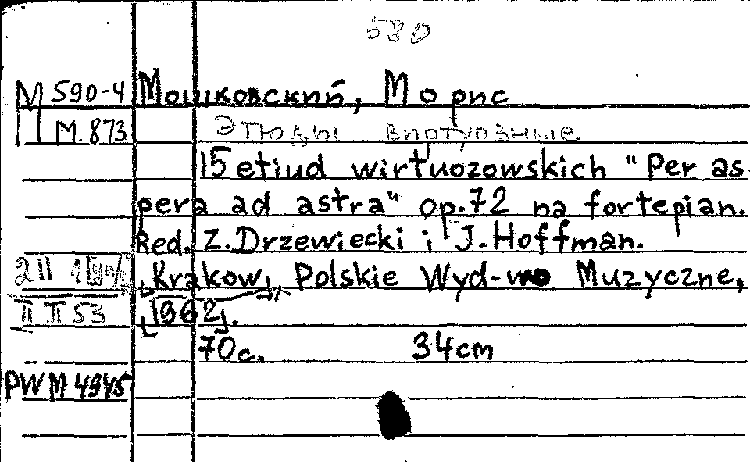 580
М 590-4 Мошковский, Морис
М. 873 Этюды виртуозные
15 etiud wirtuozowskich "Per as
pera ad astra" op.72 na fortepian.
Red. Z. Drzewiecki i J. Hoffman.
Krakow, Polskie Wyd-wo Muzyczne,
II II 53 1962.
70с. 34cm
PWM 4945